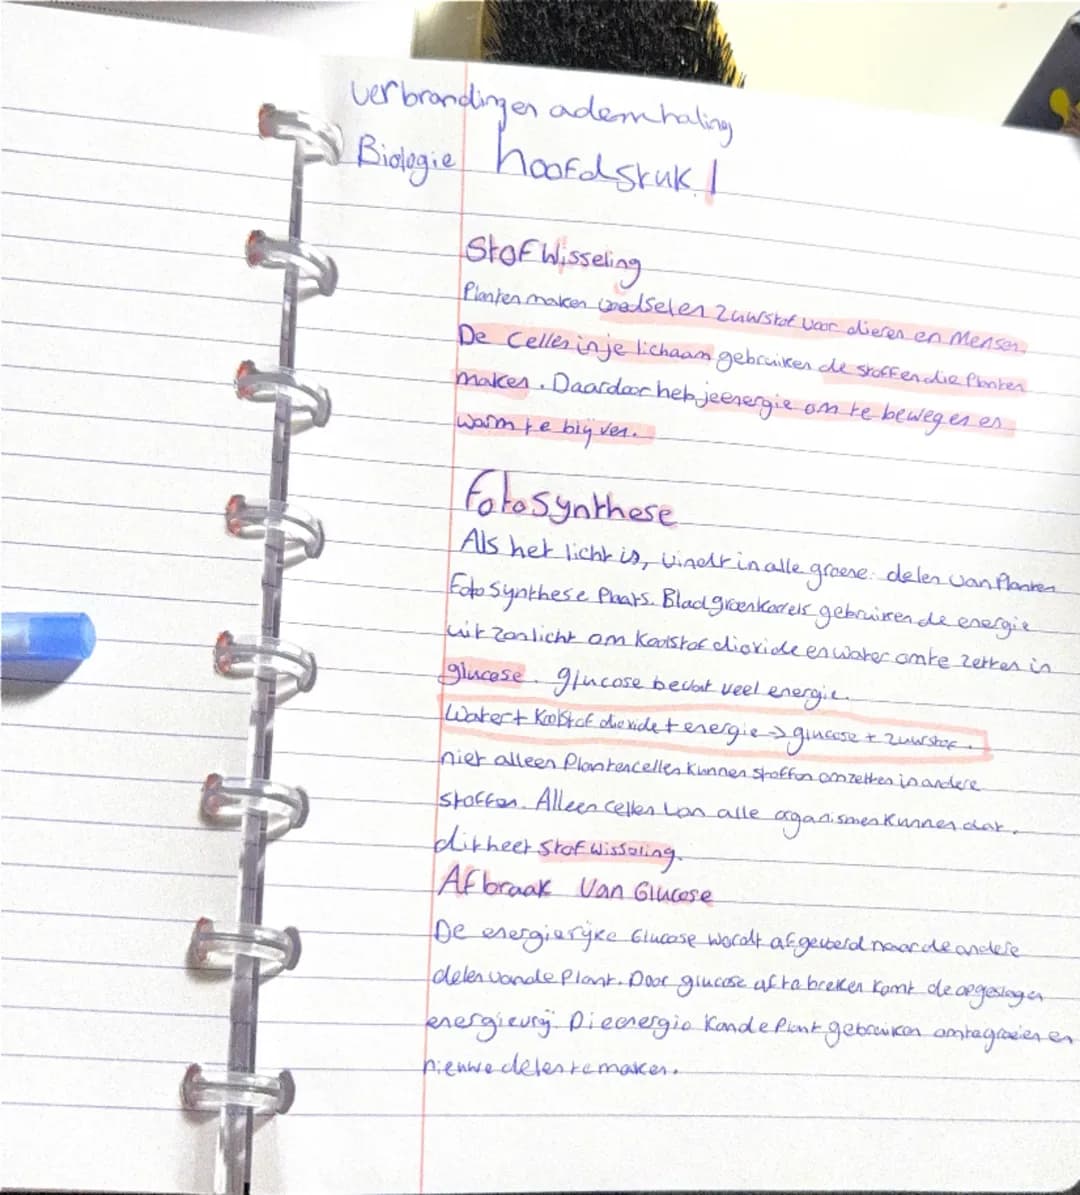 verbranding en ademhaling
Biologie hoofdstuk 1
Stofwisseling
Planten maken voedsel en zuurstof voor dieren en Mensen.
De Cellen in je lichaam gebruiken de stoffen die Planten
maken. Daardoor heb je energie om te bewegen en
warm te blijven.
Fotosynthese
Als het licht is, vindt in alle groene delen van Planten
Fotosynthese Plaats. Bladgroenkorrels gebruiken de energie
uit zonlicht om koolstofdioxide en water om te zetten in
glucose. glucose bevat veel energie.
Water + koolstofdioxide + energie → glucose + zuurstof.
niet alleen Plantencellen kunnen stoffen omzetten in andere
stoffen. Alleen cellen van alle organismen kunnen dat.
dit heet stofwisseling.
Afbraak Van Glucose
De energierijke Glucose wordt afgevoerd naar de andere
delen van de Plant. Door glucose af te breken komt de opgeslagen
energie vrij. Die energie kan de Plant gebruiken om te groeien en
nieuwe delen te maken.